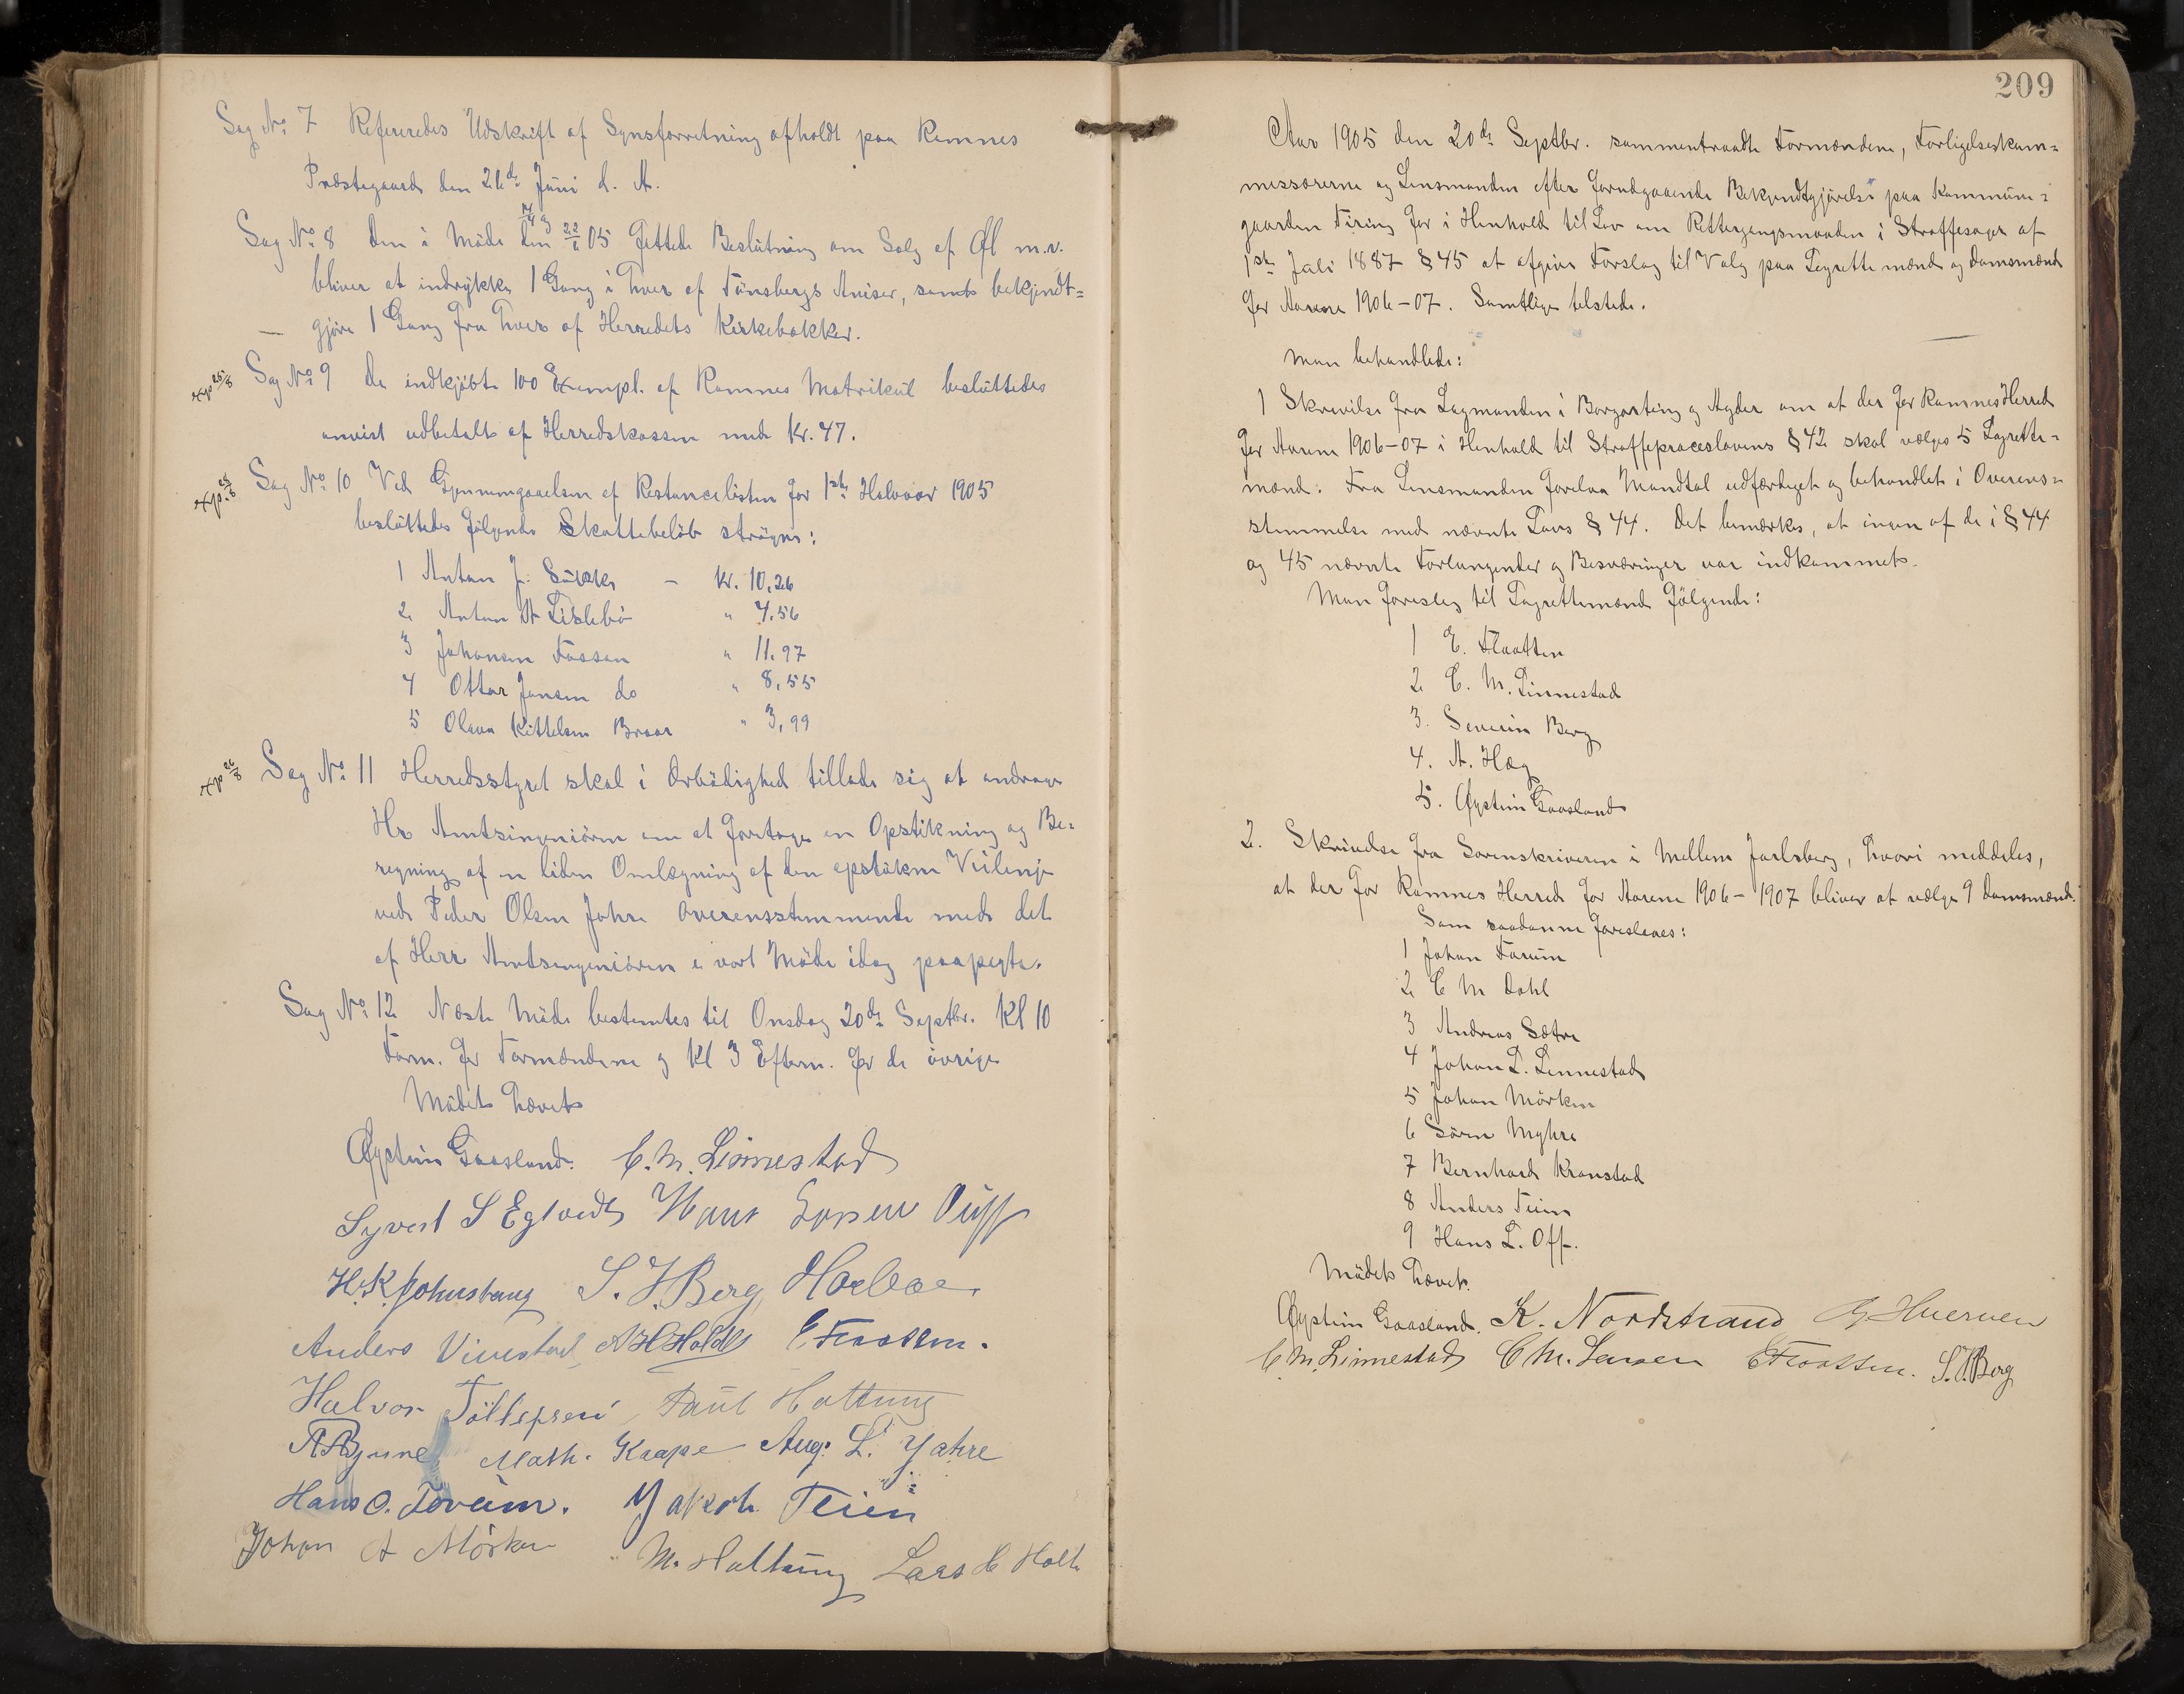 Sag No. 7 Refereredes Udskrift af Synsforretning afholdt paa Ramnes
Præstegaard den 26de Juni d. A.
Sag No. 8 den i Möde den 22/6 05 fattede Beslutning om Salg af Øl m.v.
bliver at indrykke 1 Gang i hver af Tönsbergs Aviser, samt bekjendt=
gjøre 1 Gang fra hver af Herredets Kirkebakker.
Exp 25/8 Sag No. 9 De indkjöbte 100 Exempl. af Ramnes Matrikul besluttedes
anvist udbetalt af Herredskassen med Kr. 47.
Exp. Sag No. 10 Ved Gjennemgaaelsen af Restancelisten for 1ste Halvaar 1905
besluttedes fölgende Skattebelöb strøgne:
1 Anton J. - Kr. 10,26
2 Anton A Lislebö " 4.56
3 Johansen Fossan " 11.97
4 Ottar Jansen do " 8,55
5 Olava Kittelsen Braar " 3,99
Exp 26/8 Sag No. 11 Herredsstyret skal i Ærbödighed tillade sig at andrage
Hr Amtsingeniören om at foretage en Opstikning og Be=
regning af en liden Omlægning af den opstukne Veilinje
ved Peder Olsen Jahre overensstemmende med det
af Herr Amtsingeniören i vort Möde idag paapegte.
Sag No. 12 Næste Möde bestemtes til Onsdag 20de Septbr. Kl 10
Form. for Formændene og Kl 3 Efterm. for de övrige
Mödet hævet
Øystein Gaasland. C. M. Linnestad
Syvert S Eglvedt Hans Larsen Auff
H. K. Johnsbang S. J. Berg Horbæ
Anders Vivestad, A H Holdt E Flaatten.
Halvor Tollefsen Paul Hattung
A Bjune Math. Kaape Aug: L. Jahre
Hans O. Forum. Jakob Teien
Johan A Mörken M. Haltung Lars H Holt
209
Aar 1905 den 20de Septbr. sammentraadte Formændene, Forligelseskom=
missærerne og Lensmanden efter forudgaaende Bekjendtgjörelse paa Kommune=
gaarden Firing for i Henhold til Lov om Rettergangsmaaden i Straffesager af
1ste Juli 1887 § 45 at afgive Forslag til Valg paa Lagrettemænd og Domsmænd
for Aarene 1906-07. Samtlige tilstede.
Man behandlede:
1 Skrivelse fra Lagmanden i Borgarting og Agder om at der for Ramnes Herred
for Aarene 1906-07 i Henhold til Straffeproceslovens § 42 skal vælges 5 Lagrette=
mænd. Fra Lensmanden forelaa Mandtal udfærdiget og behandlet i Overens=
stemmelse med nævnte Lovs § 44. Det bemærkes, at ingen af de i § 44
og 45 nævnte Forlangender og Besværinger var indkommet.
Man foreslog til Lagrettemænd fölgende:
1 E. Flaatten
2 C. M. Linnestad
3. Severin Berg
4. A. Hæg
5. Øystein Gaasland
2. Skrivelse fra Sorenskriveren i Mellem Jarlsberg, hvori meddeles,
at der for Ramnes Herred for Aarene 1906-1907 bliver at vælge 9 Domsmænd.
Som saadanne foresloges:
1 Johan Forum
2 C M Dahl
3 Andreas Sætre
4 Johan L. Linnestad
5 Johan Mörken
6 Sören Myhre
7 Bernhard Kronstad
8 Anders Teien
9 Hans L. Off.
Mödet hævet.
Øystein Gaasland. K. Nordstrand Huerven
C. M. Linnestad C M. Larsen E Flaatten. S. J. Berg